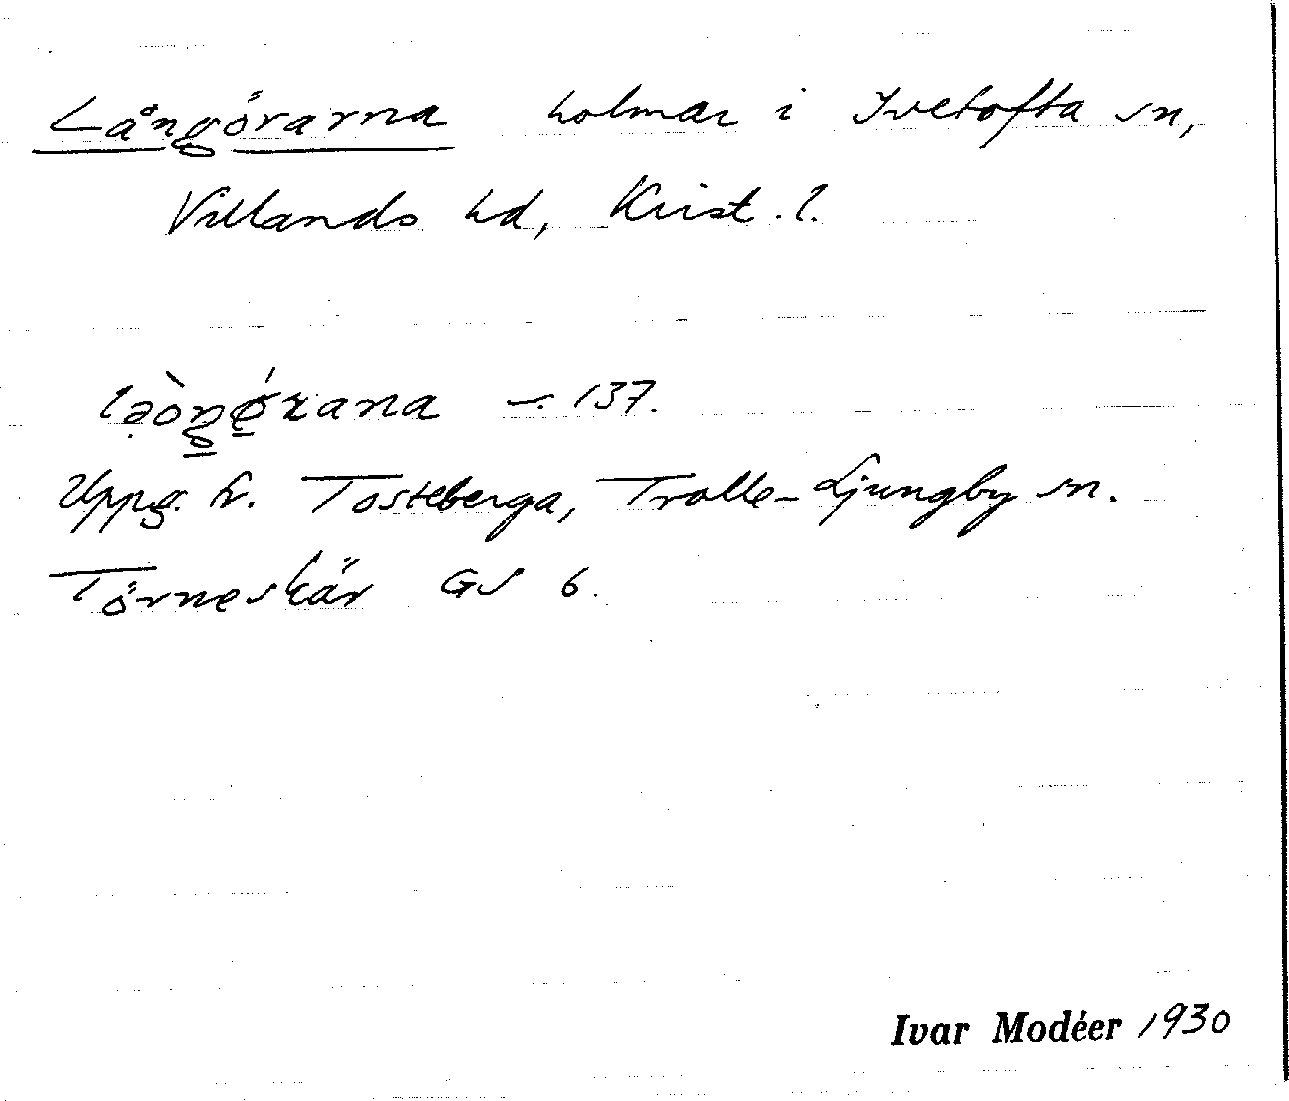 Långörarna holmar i Ivetofta sn,
Villands hd, Krist. l.
137.
Uppg. fr. Tosteberga, Trolle-Ljungby sn.
Törneskär GS 6.
Ivar Modéer 1930